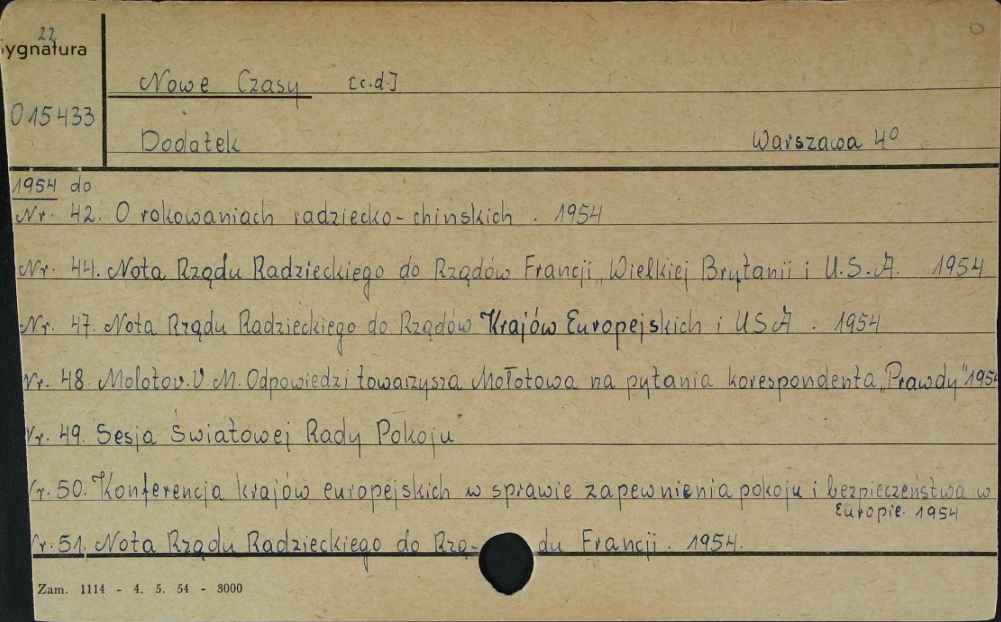 22
Sygnatura
Nowe Czasy [c.d.]
015433
Dodatek Warszawa 4°
1954 do
Nr. 42. O rokowaniach radziecko-chinskich. 1954
Nr. 44. Nota Rządu Radzieckiego do Rządów Francji, Wielkiej Brytanii i U.S.A. 1954
Nr. 47. Nota Rządu Radzieckiego do Rządów Krajów Europejskich i USA. 1954
Nr. 48. Molotov. V M. Odpowiedzi towarzysza Mołotowa na pytania korespondenta „Prawdy" 1954
Nr. 49. Sesja Światowej Rady Pokoju
Nr. 50. Konferencja krajów europejskich w sprawie zapewnienia pokoju i bezpieczeństwa w
Europie. 1954
Nr. 51. Nota Rządu Radzieckiego do Rzą- du Francji. 1954.
Zam. 1114 - 4. 5. 54 - 3000